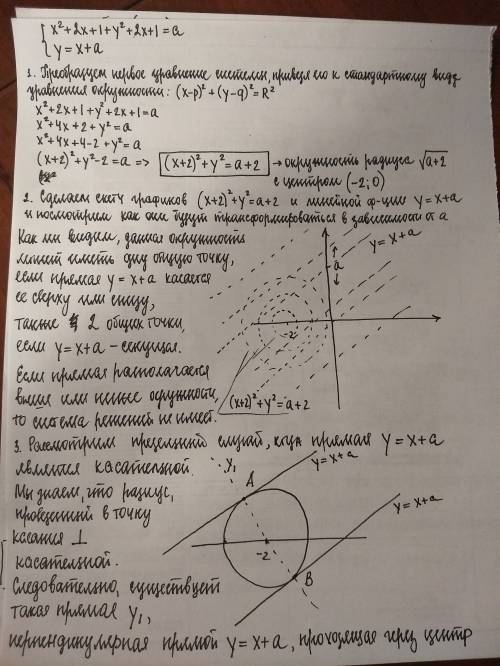 { x²+2x+1+y²+2x+1=a
{ y=x+a
1. Преобразуем первое уравнение системы, приведя его к стандартному виду
уравнения окружности: (x-p)²+(y-q)²=R²
x²+2x+1+y²+2x+1=a
x²+4x+2+y²=a
x²+4x+4-2+y²=a
(x+2)²+y²-2=a => (x+2)²+y²=a+2 → окружность радиуса √a+2
с центром (-2;0)
2. Сделаем скетч графиков (x+2)²+y²=a+2 и линейной ф-ции y=x+a
и посмотрим как они будут трансформироваться в зависимости от a
Как мы видим, данная окружность
может иметь одну общую точку,
если прямая y=x+a касается
ее сверху или снизу,
также 2 общих точки,
если y=x+a - секущая.
Если прямая располагается
выше или ниже окружности,
то система решений не имеет.
y=x+a
a
-2
(x+2)²+y²=a+2
3. Рассмотрим предельный случай, когда прямая y=x+a
является касательной.
Мы знаем, что радиус,
проведенный в точку
касания ⊥
касательной.
Следовательно, существует
такая прямая y₁,
перпендикулярная прямой y=x+a, проходящая через центр
y₁
A
y=x+a
y=x+a
-2
B